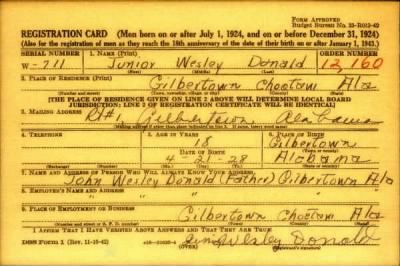 FORM APPROVED
Budget Bureau No. 33-R012-42
REGISTRATION CARD (Men born on or after July 1, 1924, and on or before December 31, 1924)
(Also for the registration of men as they reach the 18th anniversary of the date of their birth on or after January 1, 1943.)
SERIAL NUMBER
1. NAME (Print)
ORDER NUMBER
W-711
Junior Wesley Donald
12,160
(First) (Middle) (Last)
2. PLACE OF RESIDENCE (Print)
Gilbertown Choctaw Ala
(Number and street) (Town, township, village, or city) (County) (State)
[THE PLACE OF RESIDENCE GIVEN ON LINE 2 ABOVE WILL DETERMINE LOCAL BOARD
JURISDICTION; LINE 2 OF REGISTRATION CERTIFICATE WILL BE IDENTICAL]
3. MAILING ADDRESS
Rt #1 Gilbertown Alabama
[Mailing address if other than place indicated on line 2. If same, insert word same]
4. TELEPHONE
5. AGE IN YEARS
6. PLACE OF BIRTH
18
Gilbertown
DATE OF BIRTH
4-21-28
Alabama
7. NAME AND ADDRESS OF PERSON WHO WILL ALWAYS KNOW YOUR ADDRESS
John Wesley Donald (Father) Gilbertown Ala
8. EMPLOYER'S NAME AND ADDRESS
9. PLACE OF EMPLOYMENT OR BUSINESS
Gilbertown Choctaw Ala
(Number and street or R. F. D. number) (Town) (County) (State)
I AFFIRM THAT I HAVE VERIFIED ABOVE ANSWERS AND THAT THEY ARE TRUE.
DSS Form 1 (Rev. 11-16-42)
(OVER)
Wesley Donald
(Registrant's signature)